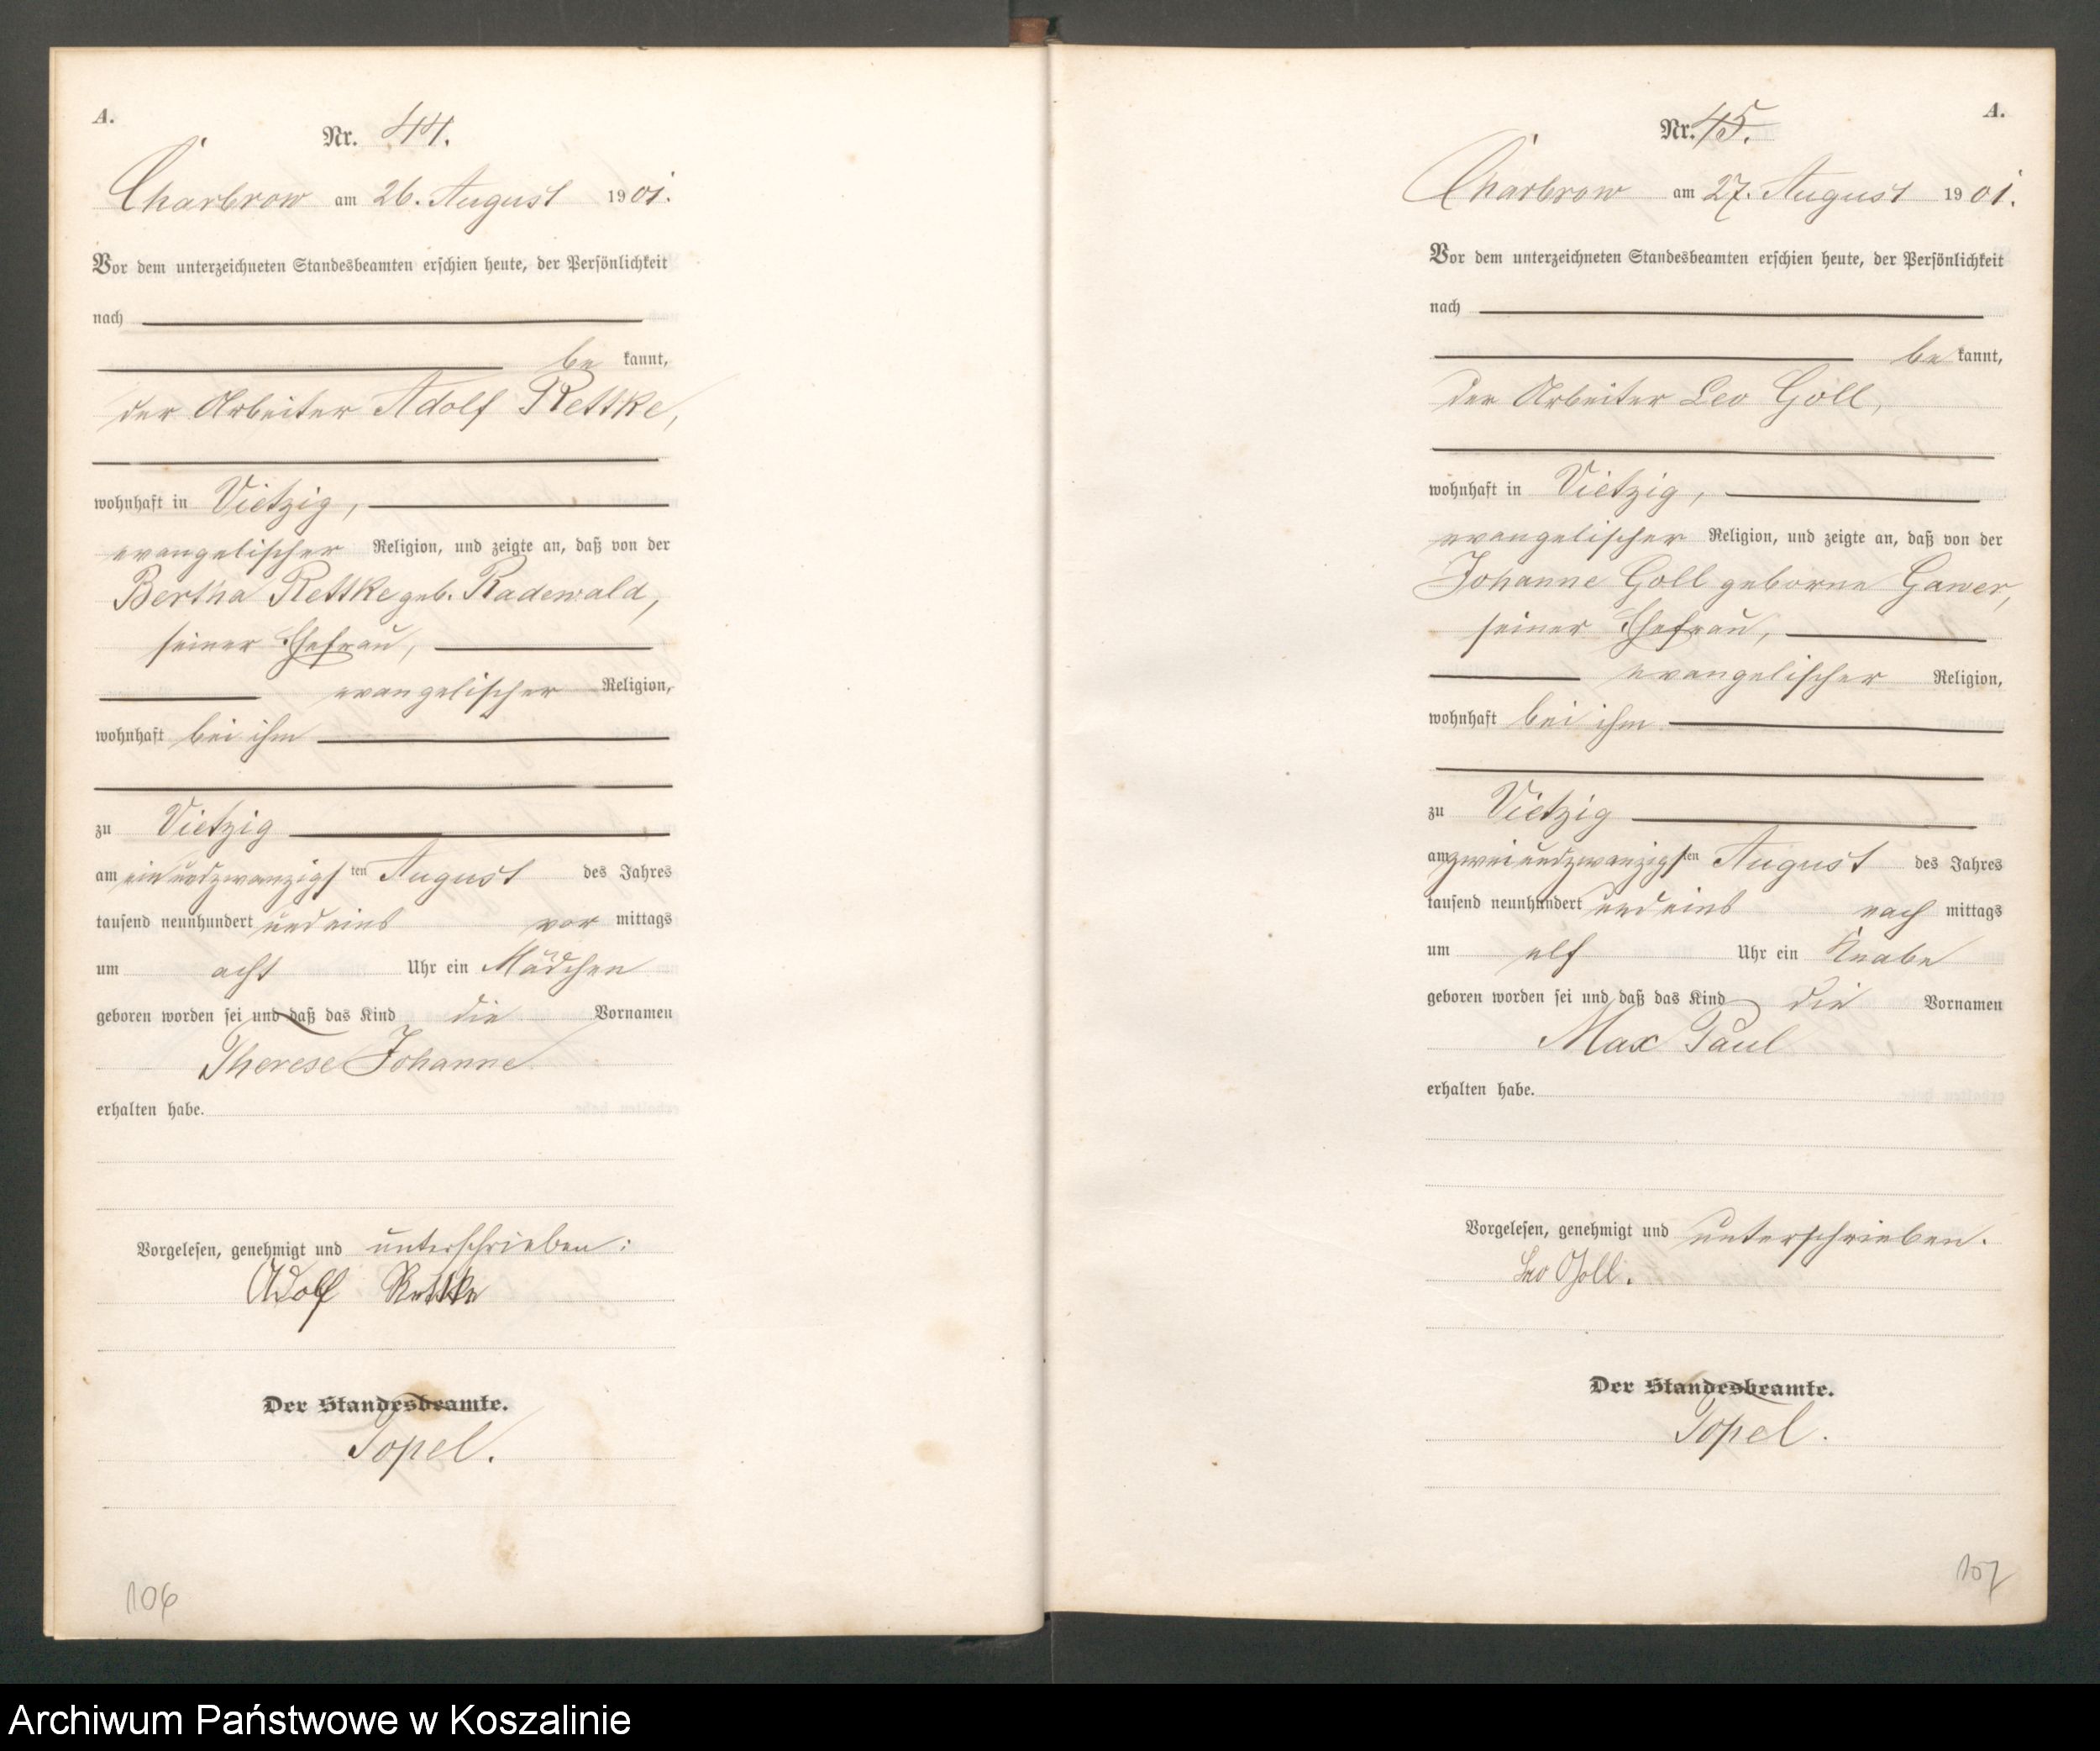 A.
Nr. 44.
Charbrow am 26. August 1901.
Vor dem unterzeichneten Standesbeamten erschien heute, der Persönlichkeit
nach
be kannt,
der Arbeiter Adolf Rettke,
wohnhaft in Vietzig,
evangelischer Religion, und zeigte an, daß von der
Bertha Rettke geb. Radewald,
seiner Ehefrau,
evangelischer Religion,
wohnhaft bei ihm
zu Vietzig
am einundzwanzigsten August des Jahres
tausend neunhundert und eins vor mittags
um acht Uhr ein Mädchen
geboren worden sei und daß das Kind die Vornamen
Therese Johanne
erhalten habe.
Vorgelesen, genehmigt und unterschrieben:
Adolf Rettke
Der Standesbeamte.
Topel.
106
A.
Nr. 45.
Charbrow am 27. August 1901.
Vor dem unterzeichneten Standesbeamten erschien heute, der Persönlichkeit
nach
be kannt,
der Arbeiter Leo Goll,
wohnhaft in Vietzig,
evangelischer Religion, und zeigte an, daß von der
Johanne Goll geborne Gawer,
seiner Ehefrau,
evangelischer Religion,
wohnhaft bei ihm
zu Vietzig
am zweiundzwanzigsten August des Jahres
tausend neunhundert und eins nach mittags
um elf Uhr ein Knabe
geboren worden sei und daß das Kind die Vornamen
Max Paul
erhalten habe.
Vorgelesen, genehmigt und unterschrieben.
Leo Goll.
Der Standesbeamte.
Topel.
107
Archiwum Państwowe w Koszalinie